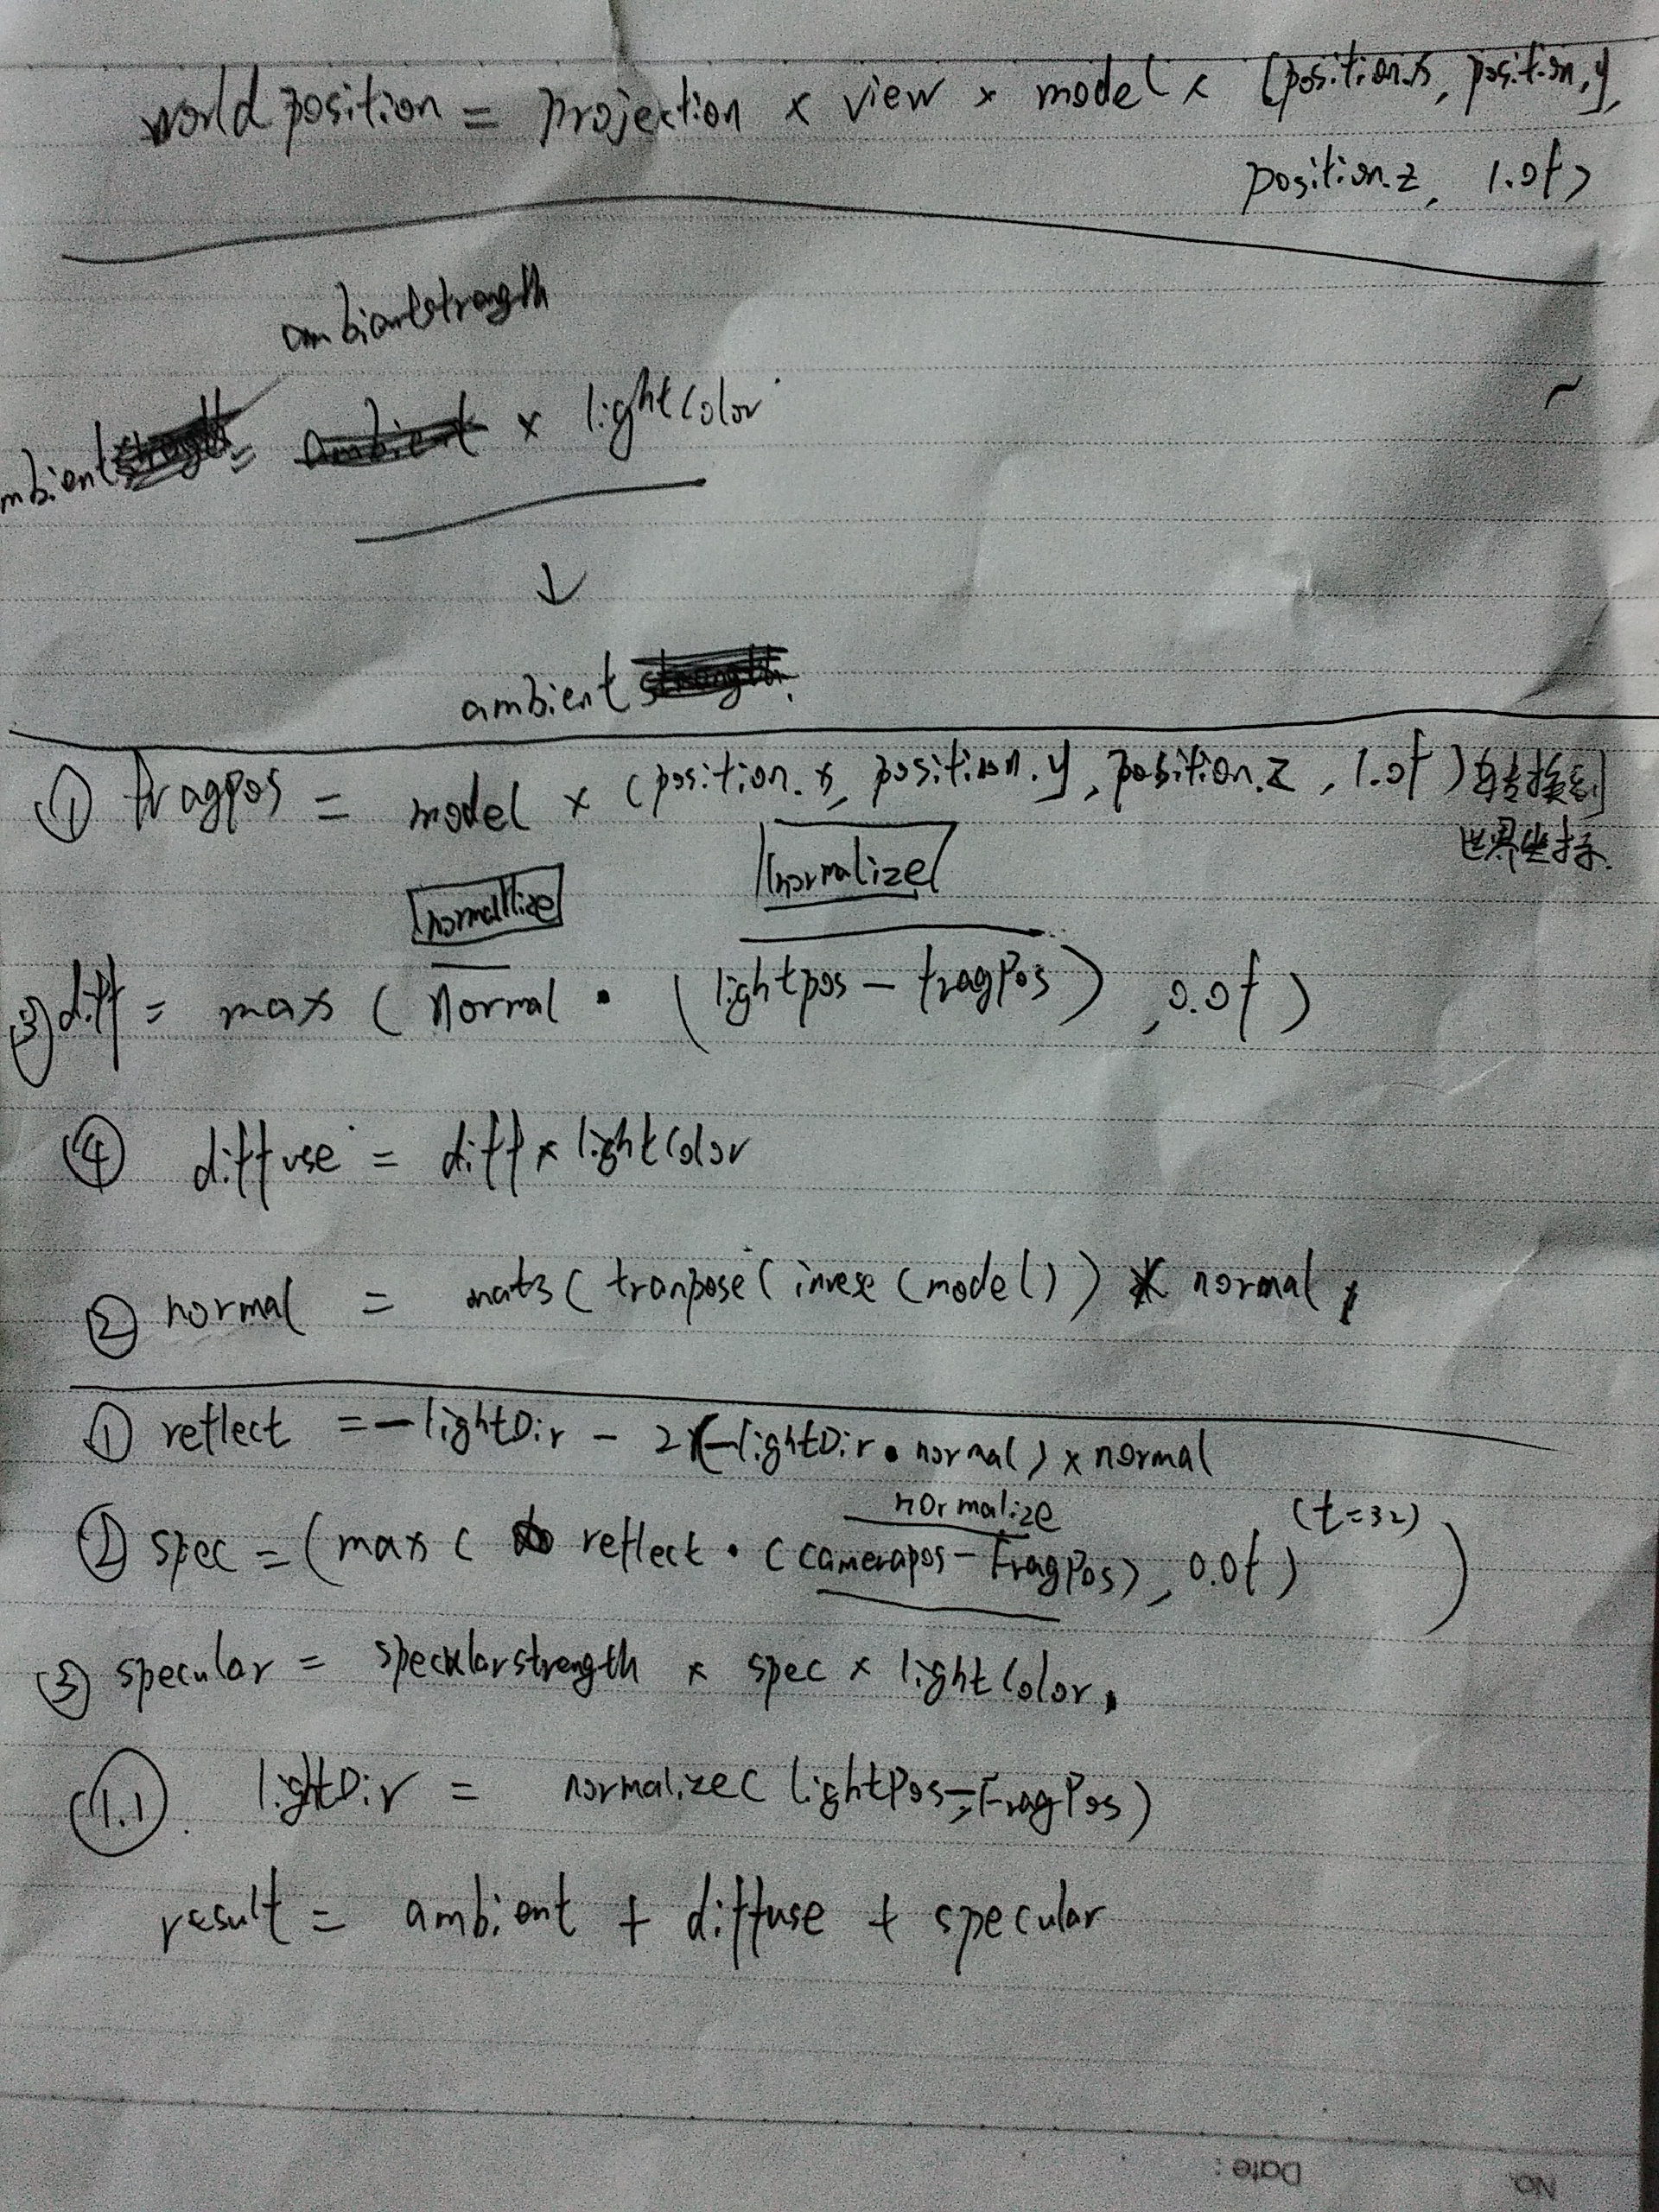 world position = projection × view × model × (position.x, position.y,
position.z, 1.0f)
ambientstrength
mbient = × lightColor
↓
ambient
① fragpos = model × (position.x, position.y, position.z, 1.0f) 转换到
世界坐标.
normallize normalize
③ diff = max ( normal • (lightpos - fragPos) , 0.0f )
④ diffuse = diff × lightColor
② normal = mat3 ( tranpose ( invese (model) ) * normal,
① reflect = -lightDir - 2×(-lightDir • normal) × normal
normalize (t=32)
② spec = (max ( reflect • (camerapos - FragPos), 0.0f) )
③ specular = specularstrength × spec × lightColor,
1.1 lightDir = normalize( lightPos - FragPos)
result = ambient + diffuse + specular
No. Date: